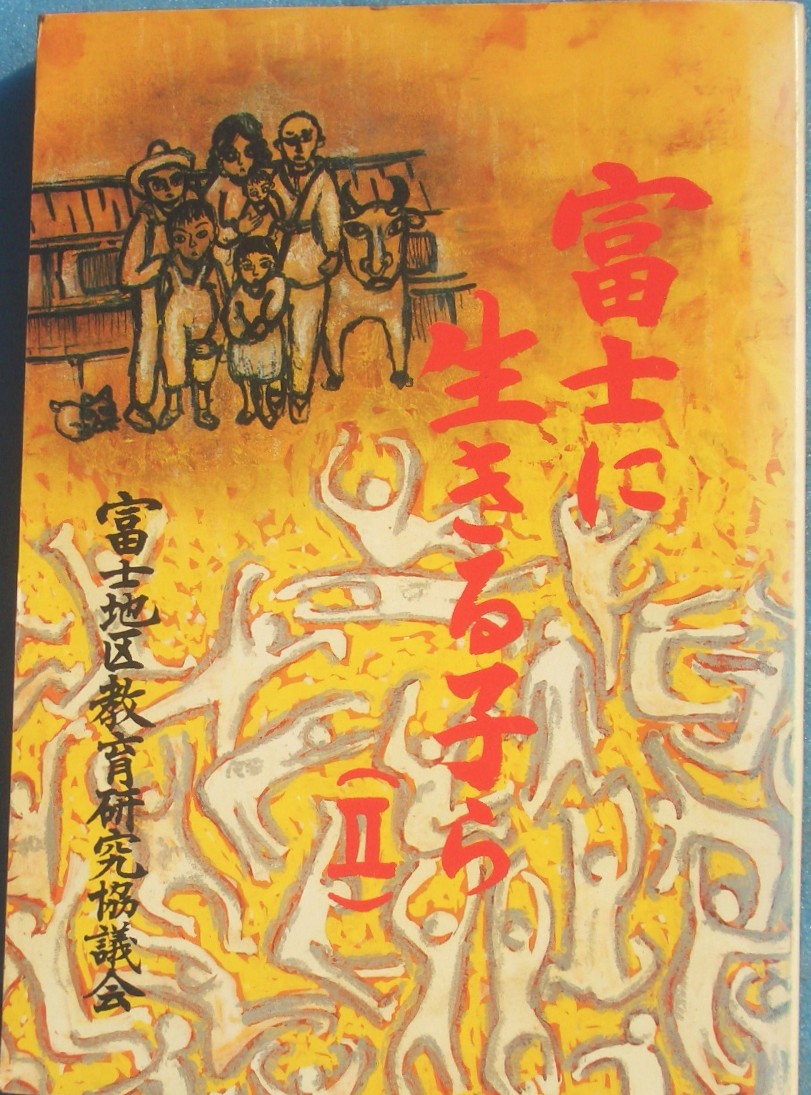 富士に
生きる子ら
（Ⅱ）
富士地区教育研究協議会